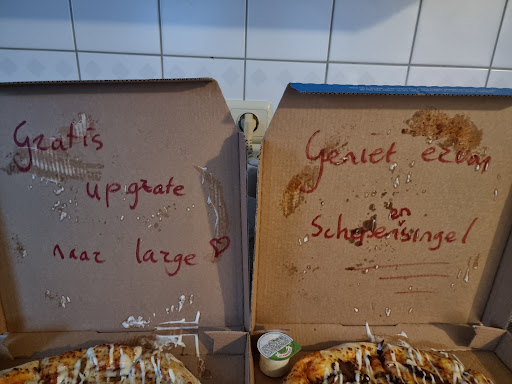 Gratis
upgrate
naar large ♡
Geniet ervan
en
Schepensingel